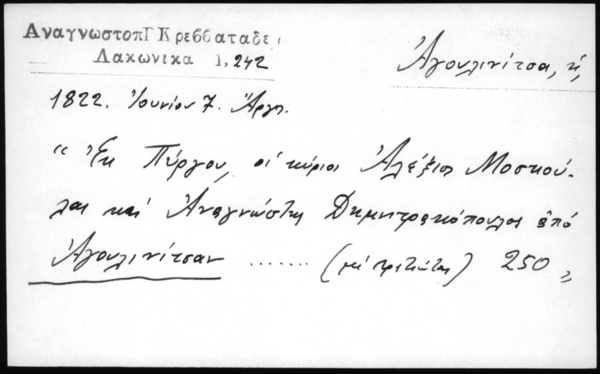 ΑναγνωστοπΓ Κρεββαταδε
Λακωνικα 1, 242
Ἀγουλινίτσα, ἡ,
1822. Ἰουνίου 7. Ἄργος.
"Ἐκ Πύργου, οἱ κύριοι Ἀλέξιος Μοσκού-
λας καὶ Ἀναγνώστης Δημητρακόπουλος ἀπό
Ἀγουλινίτσαν ...... (μὲ στρατιώτας) 250 "